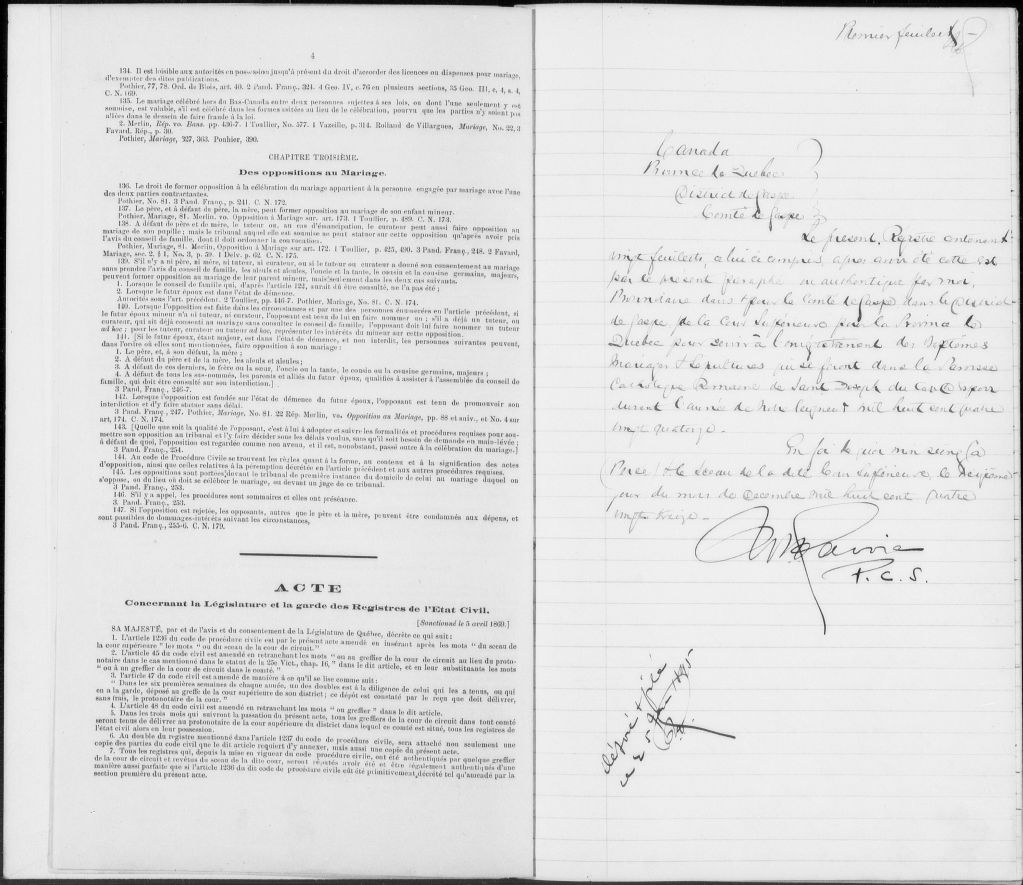 4
134. Il est loisible aux autorités en possession jusqu'à présent du droit d'accorder des licences ou dispenses pour mariage,
d'exempter des dites publications.
Pothier, 77, 78. Ord. de Blois, art. 40. 2 Pand. Franç., 324. 4 Geo. IV, c. 76 en plusieurs sections, 35 Geo. III, c. 4, s. 4,
C. N. 169.
135. Le mariage célébré hors du Bas-Canada entre deux personnes sujettes à ses lois, ou dont l'une seulement y est
soumise, est valable, s'il est célébré dans les formes usitées au lieu de la célébration, pourvu que les parties n'y soient pas
allées dans le dessein de faire fraude à la loi.
2. Merlin, Rép. vo. Bans. pp. 436-7. 1 Toullier, No. 577. 1 Vazeille, p. 314. Rolland de Villargues, Mariage, No. 22, 3
Favard. Rép., p. 30.
Pothier, Mariage, 327, 363. Pouhier, 390.
CHAPITRE TROISIÈME.
Des oppositions au Mariage.
136. Le droit de former opposition à la célébration du mariage appartient à la personne engagée par mariage avec l'une
des deux parties contractantes.
Pothier, No. 81. 3 Pand. Franç., p. 241. C. N. 172.
137. Le père, et à défaut du père, la mère, peut former opposition au mariage de son enfant mineur.
Pothier, Mariage, 81. Merlin. vo. Opposition à Mariage sur. art. 173. 1 Toullier, p. 489. C. N. 173.
138. A défaut de père et de mère, le tuteur ou, au cas d'émancipation, le curateur peut aussi faire opposition au
mariage de son pupille; mais le tribunal auquel elle est soumise ne peut statuer sur cette opposition qu'après avoir pris
l'avis du conseil de famille, dont il doit ordonner la convocation.
Pothier, Mariage, 81. Merlin, Opposition à Mariage sur art. 172. 1 Toullier, p. 425, 490. 3 Pand. Franç., 248. 2 Favard,
Mariage, sec. 2, § 1, No. 3, p. 59. 1 Delv. p. 62. C. N. 175.
139. S'il n'y a ni père, ni mère, ni tuteur, ni curateur, ou si le tuteur ou curateur a donné son consentement au mariage
sans prendre l'avis du conseil de famille, les aïeuls et aïeules, l'oncle et la tante, le cousin et la cousine germains, majeurs,
peuvent former opposition au mariage de leur parent mineur, mais seulement dans les deux cas suivants.
1. Lorsque le conseil de famille qui, d'après l'article 122, aurait dû être consulté, ne l'a pas été;
2. Lorsque le futur époux est dans l'état de démence.
Autorités sous l'art. précédent. 2 Toullier, pp. 446-7. Pothier, Mariage, No. 81. C. N. 174.
140. Lorsque l'opposition est faite dans les circonstances et par une des personnes énumérées en l'article précédent, si
le futur époux mineur n'a ni tuteur, ni curateur, l'opposant est tenu de lui en faire nommer un; s'il a déjà un tuteur, ou
curateur, qui ait déjà consenti au mariage sans consulter le conseil de famille, l'opposant doit lui faire nommer un tuteur
ad hoc; pour les tuteur, curateur ou tuteur ad hoc, représenter les intérêts du mineur sur cette opposition.
141. [Si le futur époux, étant majeur, est dans l'état de démence, et non interdit, les personnes suivantes peuvent,
dans l'ordre où elles sont mentionnées, faire opposition à son mariage:
1. Le père, et, à son défaut, la mère;
2. A défaut du père et de la mère, les aïeuls et aïeules;
3. A défaut de ces derniers, le frère ou la sœur, l'oncle ou la tante, le cousin ou la cousine germains, majeurs;
4. A défaut de tous les sus-nommés, les parents et alliés du futur époux, qualifiés à assister à l'assemblée du conseil de
famille, qui doit être consulté sur son interdiction.]
3 Pand. Franç., 246-7.
142. Lorsque l'opposition est fondée sur l'état de démence du futur époux, l'opposant est tenu de promouvoir son
interdiction et d'y faire statuer sans délai.
3 Pand. Franç., 247. Pothier, Mariage, No. 81. 22 Rép. Merlin, vo. Opposition au Mariage, pp. 88 et suiv., et No. 4 sur
art, 174. C. N. 174.
143. [Quelle que soit la qualité de l'opposant, c'est à lui à adopter et suivre les formalités et procédures requises pour sou-
mettre son opposition au tribunal et l'y faire décider sous les délais voulus, sans qu'il soit besoin de demande en main-levée;
à défaut de quoi, l'opposition est regardée comme non avenue, et il est, nonobstant, passé outre à la célébration du mariage.]
3 Pand. Franç., 254.
144. Au code de Procédure Civile se trouvent les règles quant à la forme, au contenu et à la signification des actes
d'opposition, ainsi que celles relatives à la péremption décrétée en l'article précédent et aux autres procédures requises.
145. Les oppositions sont portées devant le tribunal de première instance du domicile de celui au mariage duquel on
s'oppose, ou du lieu où doit se célébrer le mariage, ou devant un juge de ce tribunal.
3 Pand. Franç., 253.
146. S'il y a appel, les procédures sont sommaires et elles ont préséance.
3 Pand. Franç., 253.
147. Si l'opposition est rejetée, les opposants, autres que le père et la mère, peuvent être condamnés aux dépens, et
sont passibles de dommages-intérêts suivant les circonstances,
3 Pand. Franç., 255-6. C. N. 179.
ACTE
Concernant la Législature et la garde des Registres de l'Etat Civil.
[Sanctionné le 5 avril 1869.]
SA MAJESTÉ, par et de l'avis et du consentement de la Législature de Québec, décrète ce qui suit:
1. L'article 1236 du code de procédure civile est par le présent acte amendé en insérant après les mots "du sceau de
la cour supérieure" les mots "ou du sceau de la cour de circuit."
2. L'article 45 du code civil est amendé en retranchant les mots "ou au greffier de la cour de circuit au lieu du proto-
notaire dans le cas mentionné dans le statut de la 25e Vict., chap. 16," dans le dit article, et en leur substituants les mots
"ou à un greffier de la cour de circuit dans le comté."
3. l'article 47 du code civil est amendé de manière à ce qu'il se lise comme suit:
"Dans les six premières semaines de chaque année, un des doubles est à la diligence de celui qui les a tenus, ou qui
en a la garde, déposé au greffe de la cour supérieure de son district; ce dépôt est constaté par le reçu que doit délivrer,
sans frais, le protonotaire de la cour.
4. L'article 48 du code civil est amendé en retranchant les mots "ou greffier" dans le dit article.
5. Dans les trois mois qui suivront la passation du présent acte, tous les greffiers de la cour de circuit dans tout comté
seront tenus de délivrer au protonotaire de la cour supérieure du district dans lequel ce comté est situé, tous les registres de
l'état civil alors en leur possession.
6. Au double du registre mentionné dans l'article 1237 du code de procédure civile, sera attaché non seulement une
copie des parties du code civil que le dit article requiert d'y annexer, mais aussi une copie du présent acte.
7. Tous les registres qui, depuis la mise en vigueur du code procédure civile, ont été authentiqués par quelque greffier
de la cour de circuit et revêtus du sceau de la dite cour, seront réputés avoir été et être également authentiqués d'une
manière aussi parfaite que si l'article 1236 du dit code de procédure civile eût été primitivement décrété tel qu'amendé par la
section première du présent acte.
Premier feuillet
Canada
Province de Quebec
District de Gaspe
Comté de Gaspe
Le présent Registre contenant
vingt feuillets, celui ci compris, après avoir été cotté est
par le présent paraphé et authentiqué par moi,
Protonotaire dans & pour le Comté de Gaspe dans le District
de Gaspe, de la Cour Supérieure pour la Province de
Quebec pour servir à l'enregistrement des Baptemes
Mariages & Sepultures qui se feront dans la Paroisse
Catholique Romaine de Saint Joseph du Cap d'Espoir
durant l'année de Notre Seigneur mil huit cent quatre
vingt quatorze.
En foi de quoi mon seing (à
Percé) & le Sceau de la dite Cour Supérieure, le
jour du mois de Decembre mil huit cent quatre
vingt treize.
P. C. S.
déposé & filé
ce 25 1895